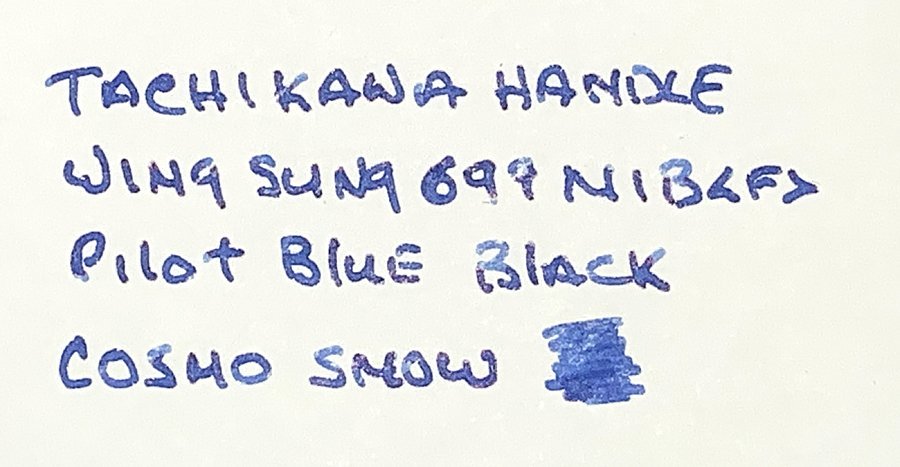 TACHIKAWA HANDLE
WING SUNG 699 NIB<F>
Pilot BluE BlACK
COSMO SNOW